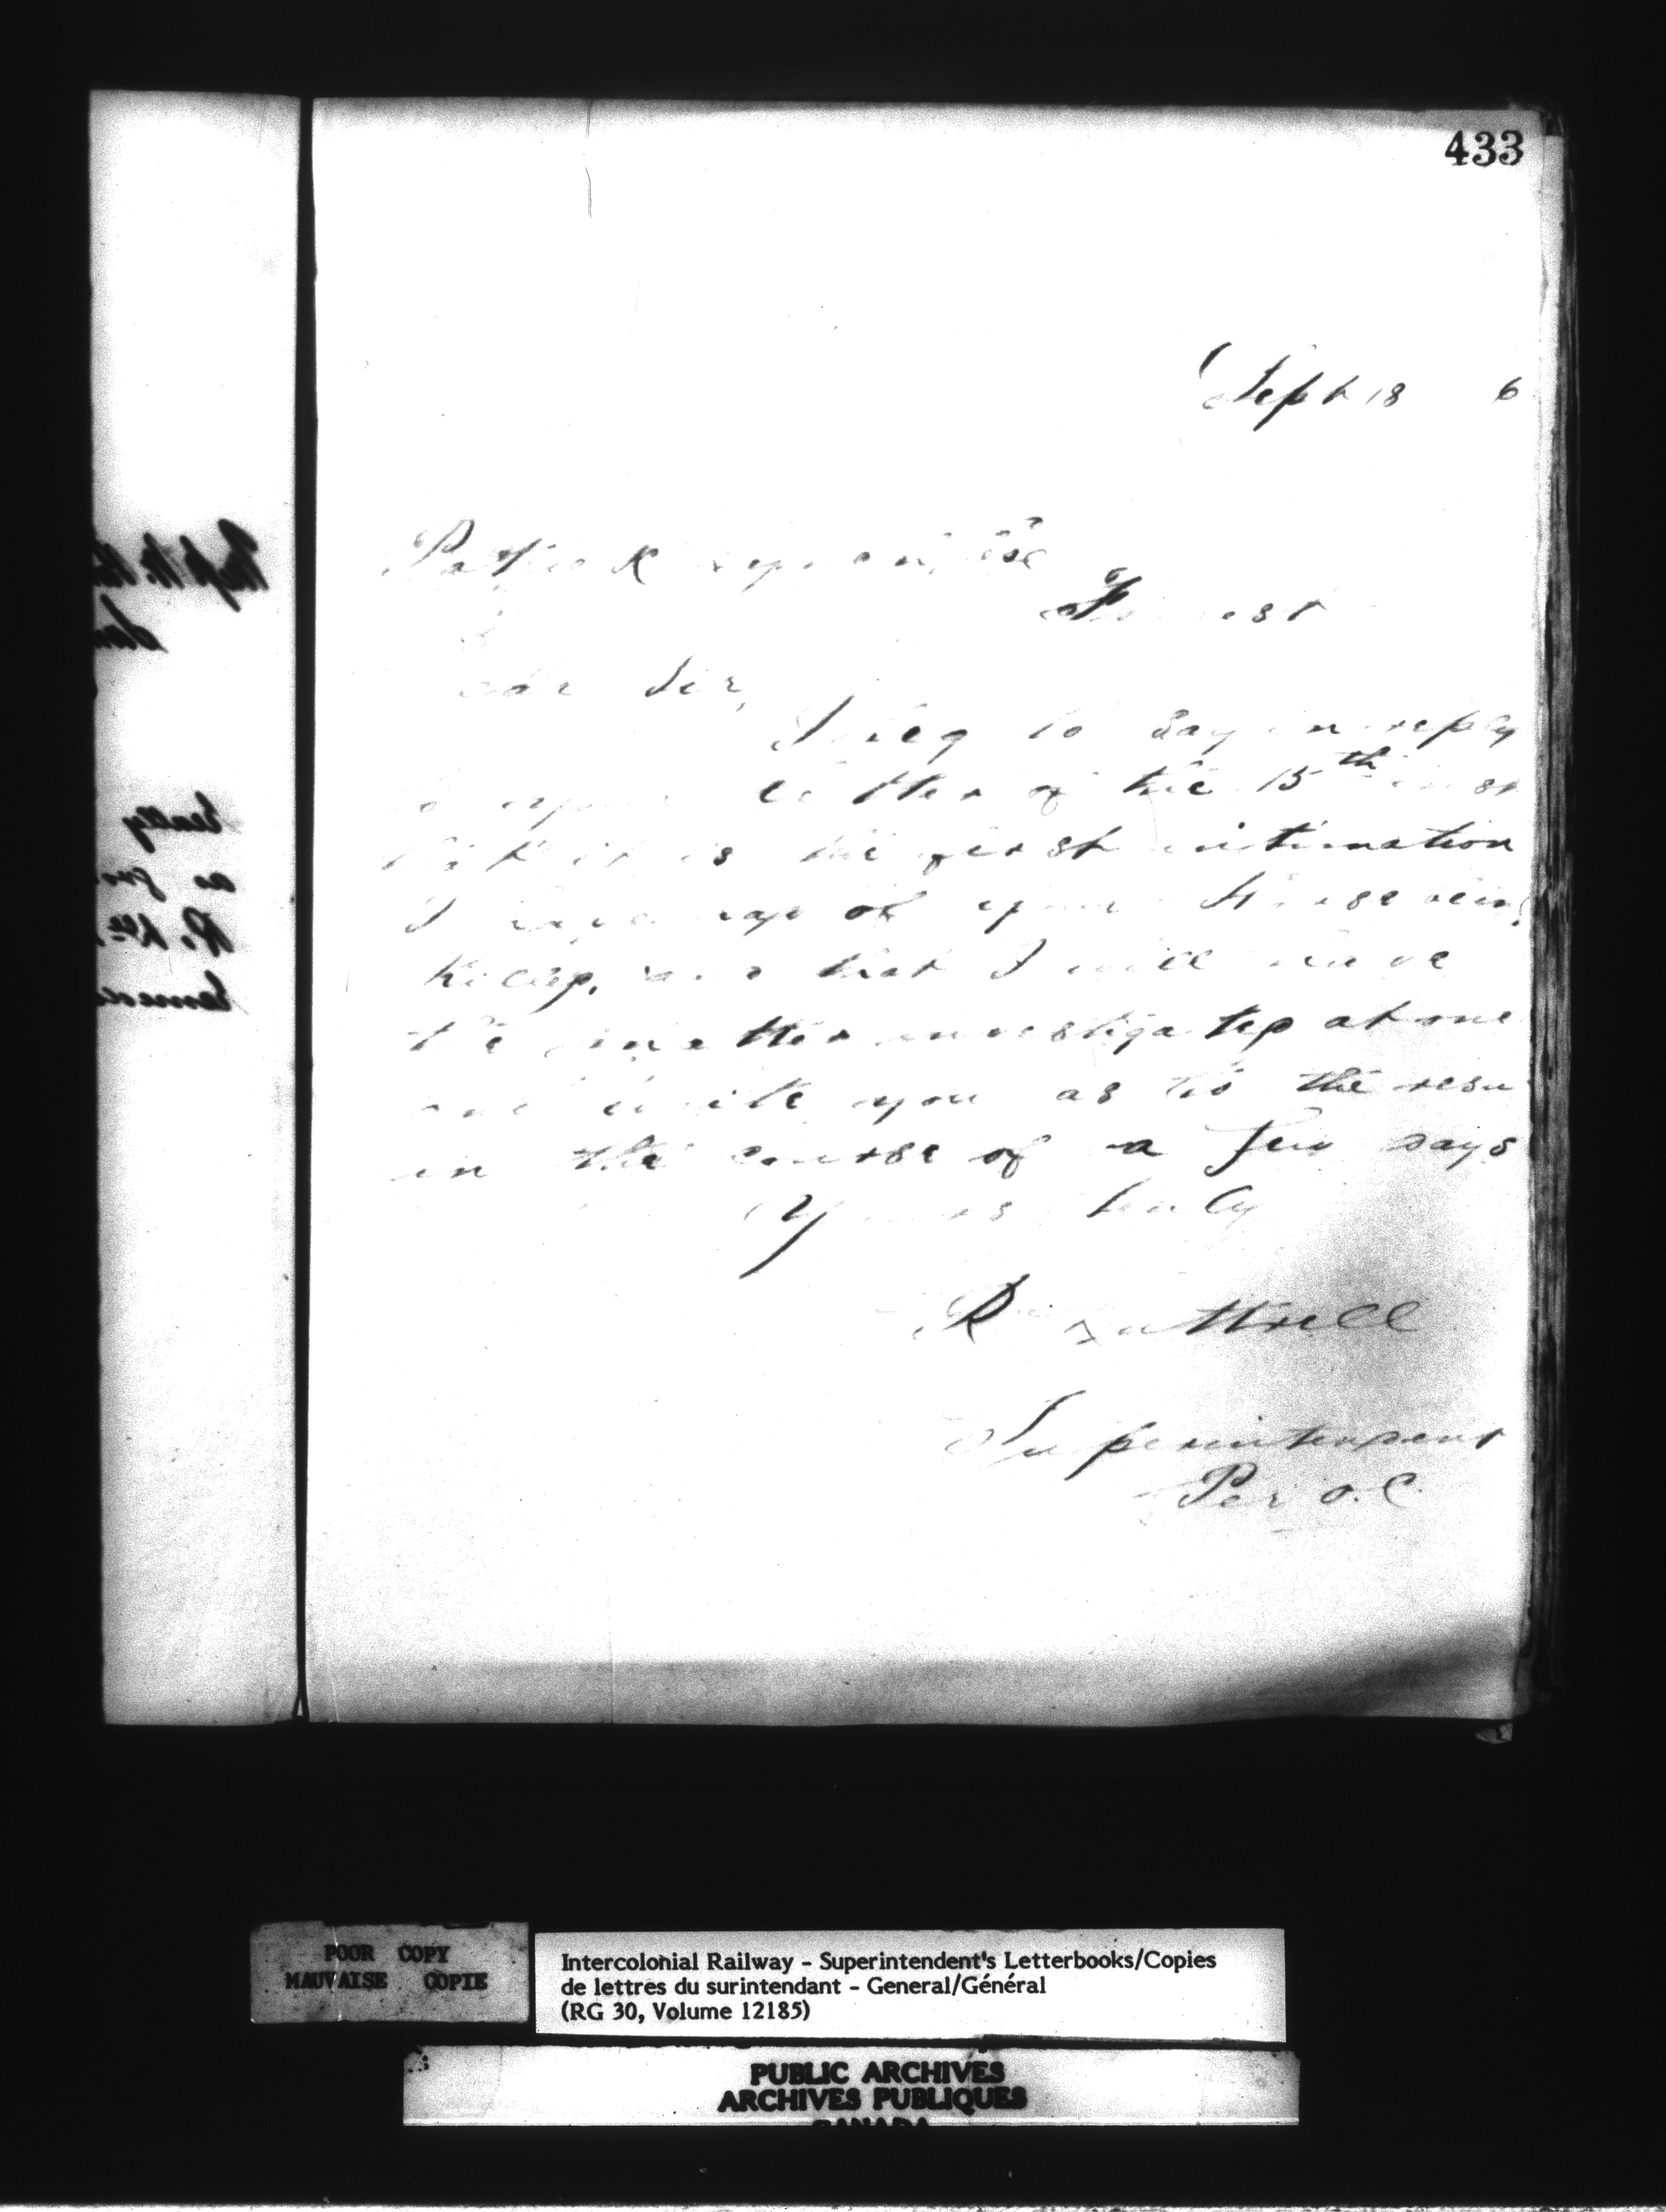 433
Sept 18 6
Patrick
Dear Sir,
I beg to say in reply
to your letter of the 15th inst
that it is the first intimation
I have had of your Horse being
killed, and that I will have
the matter investigated at once
and write you as to the resu
in the course of a few days
Yours truly
R Luttrell
Superintendent
Per O. C.
POOR COPY
MAUVAISE COPIE
Intercolonial Railway - Superintendent's Letterbooks/Copies
de lettres du surintendant - General/Général
(RG 30, Volume 12185)
PUBLIC ARCHIVES
ARCHIVES PUBLIQUES
CANADA